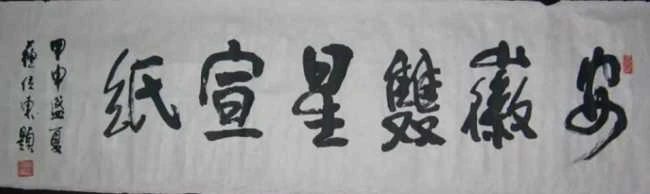 安徽雙星宣紙
甲申盛夏
蘇仕東題